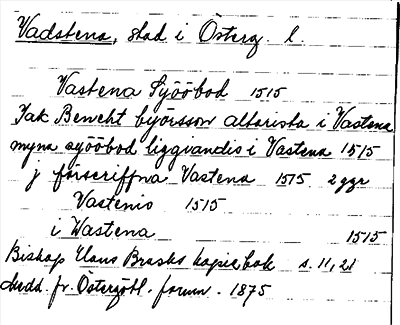 Vadstena, stad i Österg. l.
Vastena Syööbod 1515
Jak Benecht byörsson altarista i Vastena
myna syööbod liggvandis i Vastena 1515
j forscriffna Vastena 1515 2 ggr
Vastenis 1515
i Wastena 1515
Biskop Hans Brasks kopiebok s. 11, 21
Medd. fr. Östergötl. fornm. 1875